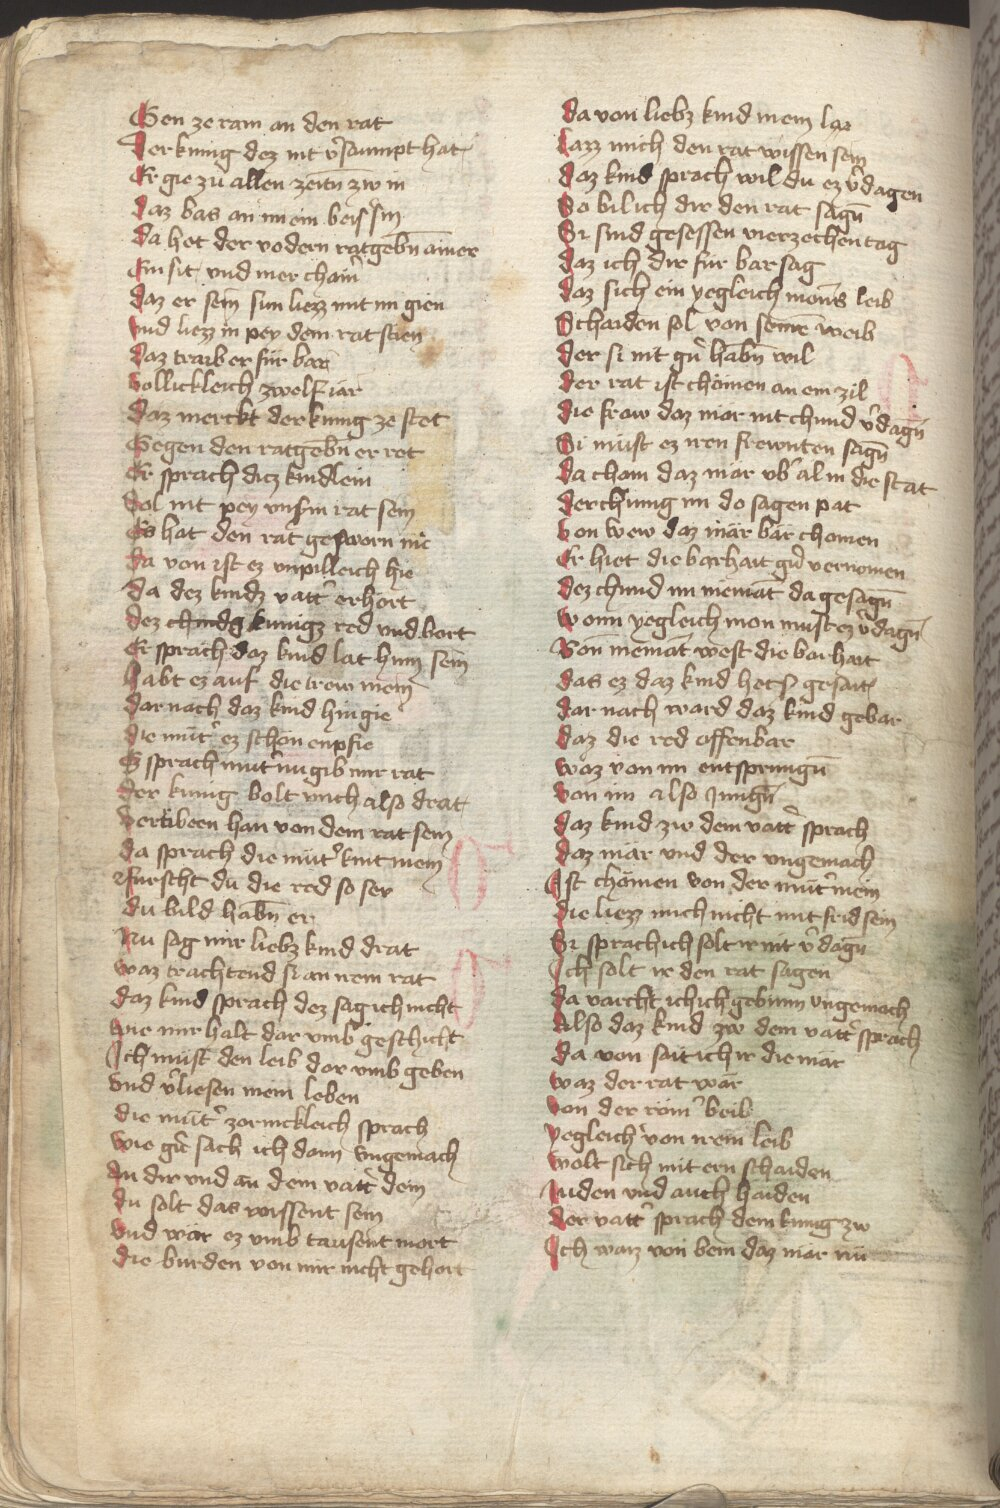 Gen ze ram an den rat
Der kunig dez nit v̓sawmpt hat
Er gie zu allen zeitn̄ zw in
daz bas an im ein beis sin
da het der vodern ratgebn̄ ainer
Ein sit vnd mer chain̓
daz er sein sun liezz mit im gien
vnd liezz in pey dem rat stien
daz traib er für bar
vollickleich zwelf iar
daz merckt der kunig ze stet
Gegen den ratgebn̄ er ret
Er sprach dicz kindlein
Sol nit pey vnsm rat sein
Es hat den rat gesworn nie
da von ist ez vnpilleich hie
da dez kindz vatt̓ erhort
dez kunigz red vnd bort
Er sprach daz kind lat hinn sein
habt ez auf die trew mein
dar nach daz kind hin gie
die mut̓ ez schon enpfie
Si sprach mut̓ nu gib mir rat
der kunig bolt mich also drat
vertriben han von dem rat sein
da sprach die mut̓ kint mein
furscht du die red so ser
du bild habn̄ er
Nu sag mir liebz kind drat
waz trachtend si an irem rat
daz kind sprach dez sag ich nicht
wie mir halt dar vmb geschicht
Ich must den leib dar vmb geben
vnd v̓liesen mein leben
die mut̓ zornickleich sprach
wie gr̓ sach ich dann vngemach
An dir vnd an dem vatt̓ dein
du solt das wissent sein
vnd wär ez vmb tausent mort
die burden von mir nicht gehort
da von liebz kind mein lar
lazz mich den rat wissen sein
daz kind sprach wil du ez v̓dagen
So bil ich dir den rat sagn̄
Si sind gesessen vierzechen tag
daz ich dir für bar sag
daz sich ein yegleich mons leib
Schaiden sol von seine weib
der si nit gr̓ habn̄ wil
der rat ist chömen an ein zil
die fraw daz mär nit chund v̓dagn̄
Si must ez iren frewnten sagn̄
da chom daz mär vb̓ al in die stat
der chunig im do sagen pat
von wew daz mär bär chomen
Er hiet die barhait gr̓ vernomen
dez chund im niemāt da gesagn̄
wann yegleich mon must ez v̓dagn̄
Von niemāt west die barhait
das ez daz kind het gesait
dar nach ward daz kind gebar
daz die red offenbar
waz von im entsprungn̄
von im also Jungn̄
daz kind zw dem vatt̓ sprach
daz mär vnd der vngemach
Ist chömen von der mut̓ mein
die liezz mich nicht mit frid sein
Si sprach ich solt ir nit v̓dagn̄
Ich solt ir den rat sagen
da varcht ich ich gebunn vngemach
Also daz kind zw dem vatt̓ sprach
da von sait ich ir die mär
waz der rat wär
von der röm̓ beib
yegleich̓ von irem leib
wolt sich mit ern schaiden
Juden vnd auch haiden
der vatt̓ sprach dem kunig zw
Ich waiz von bem daz mär nu